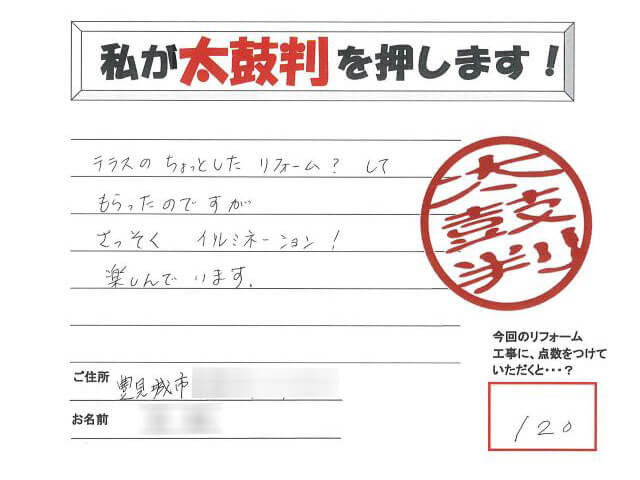 私が太鼓判を押します！
テラスの ちょっとした リフォーム？ して
もらったのですが
さっそく イルミネーション！
楽しんでいます.
太鼓判
今回のリフォーム
工事に、点数をつけて
いただくと・・・？
120
ご住所 豊見城市
お名前